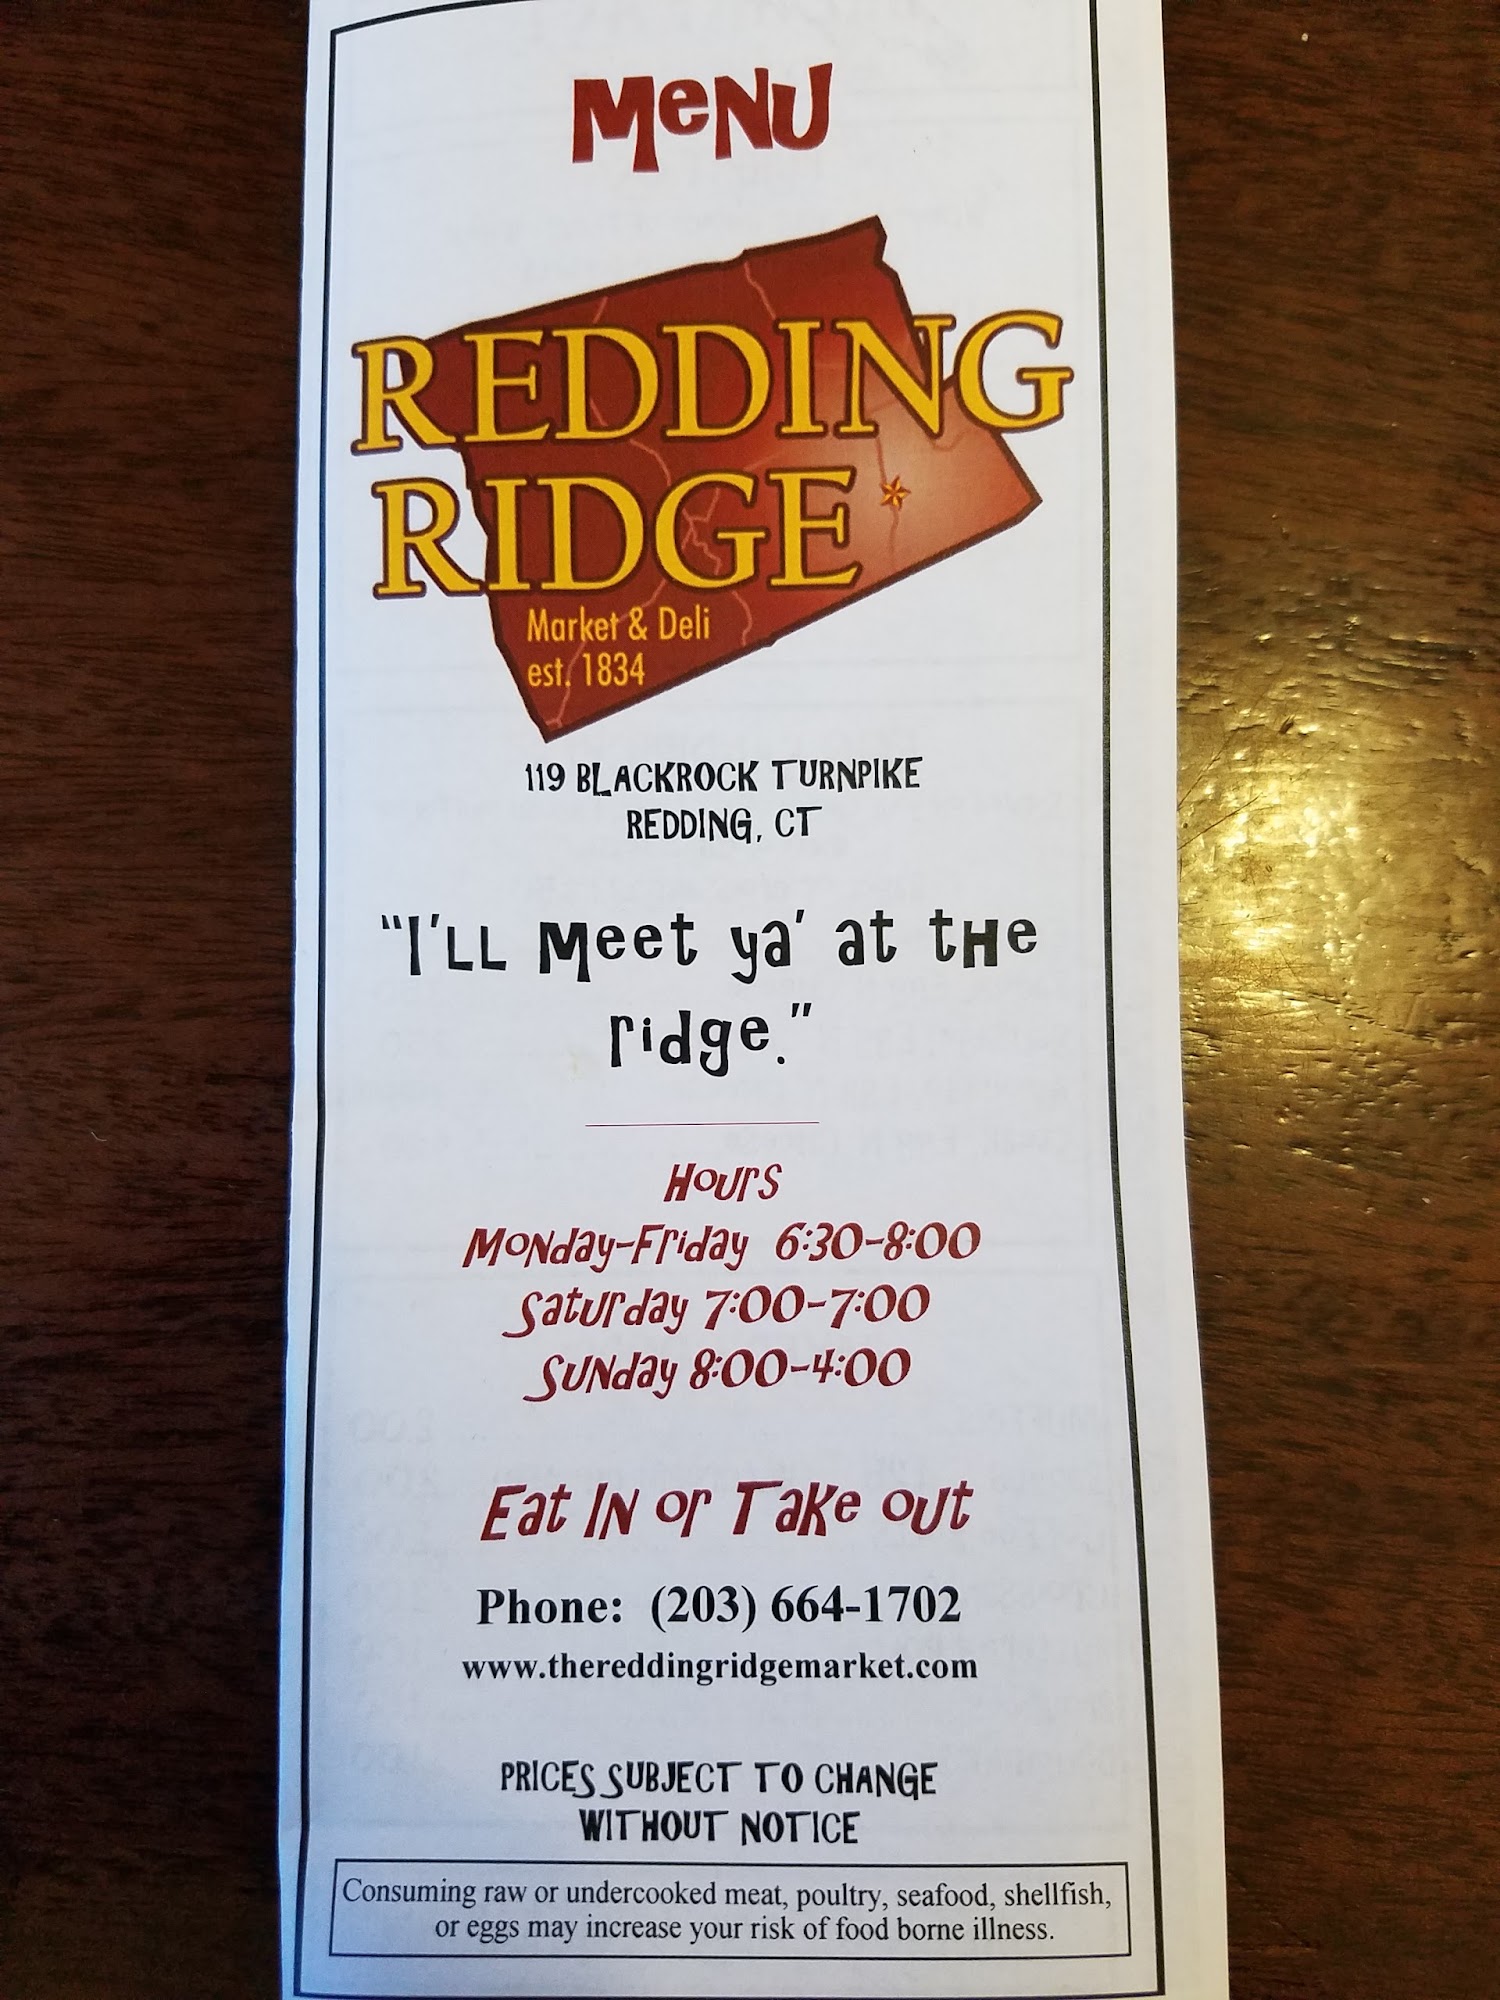 MeNU
REDDING
RIDGE
Market & Deli
est. 1834
119 BLACKROCK TURNPIKE
REDDING, CT
"I'LL Meet ya' at tHe
ridge."
HOurs
MONday-Friday 6:30-8:00
Saturday 7:00-7:00
SUNday 8:00-4:00
Eat IN or Take out
Phone: (203) 664-1702
www.thereddingridgemarket.com
PRICES SUBJECT TO CHANGE
WITHOUT NOTICE
Consuming raw or undercooked meat, poultry, seafood, shellfish,
or eggs may increase your risk of food borne illness.